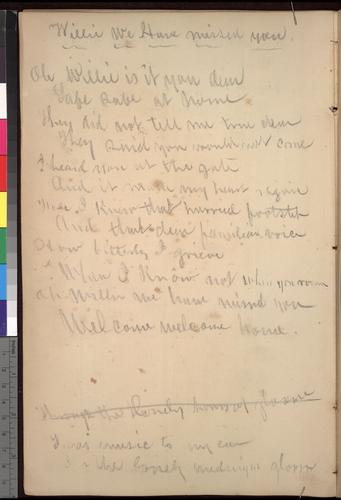 Willie We Have missed you.
Oh Willie is it you dear
Safe safe at home
They did not tell me true dear
They said you would not come
I heard you at the gate
And it made my heart rejoice
I knew that
And that dear familiar voice
How bitterly I grieve
When I know not
Oh Willie we have missed you
Welcome welcome home.
the lonely hours of gloom
Twas music to my ear
the lonely midnight gloom